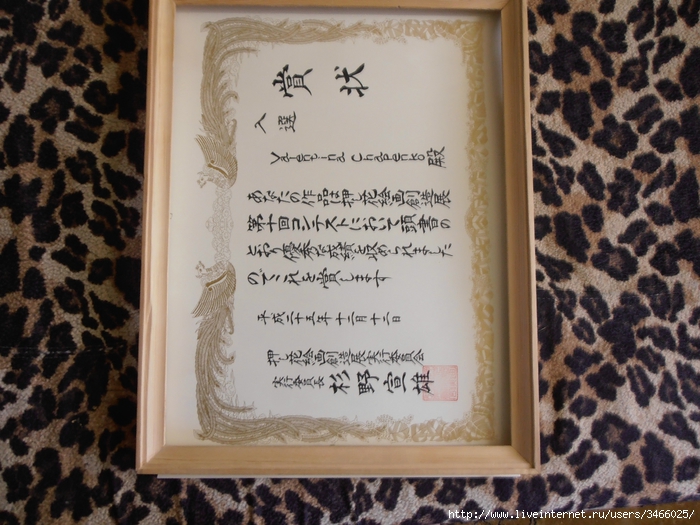 賞状
入選
Valentina Chapenko殿
あなたの作品は押し花絵画創造展
第十回コンテストにおいて頭書の
とおり優秀な成績を収められました
のでこれを賞します
平成二十五年十二月十二日
押し花絵画創造展実行委員会
実行委員長 杉野宣雄
http://www.liveinternet.ru/users/3466025/